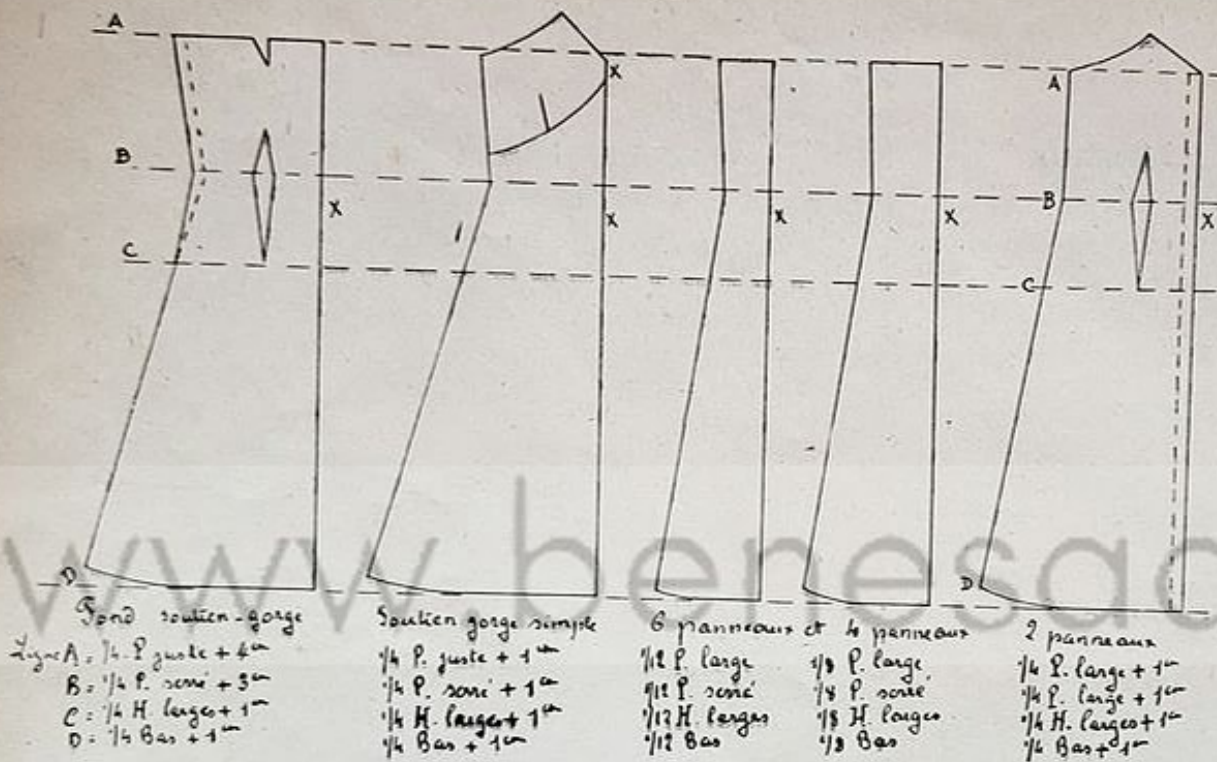 A
X
X
A
B
X
X
X
X
B
X
C
C
D
D
www.benesac
Fond soutien-gorge
Ligne A = 1/4 P. juste + 4cm
B = 1/4 P. serré + 3cm
C = 1/4 H. larges + 1cm
D = 1/4 Bas + 1cm
Soutien gorge simple
1/4 P. juste + 1cm
1/4 P. serré + 1cm
1/4 H. larges + 1cm
1/4 Bas + 1cm
6 panneaux et 4 panneaux
1/12 P. large 1/8 P. large
1/12 P. serré 1/8 P. serré
1/12 H. larges 1/8 H. larges
1/12 Bas 1/8 Bas
2 panneaux
1/4 P. large + 1cm
1/4 P. large + 1cm
1/4 H. larges + 1cm
1/4 Bas + 1cm